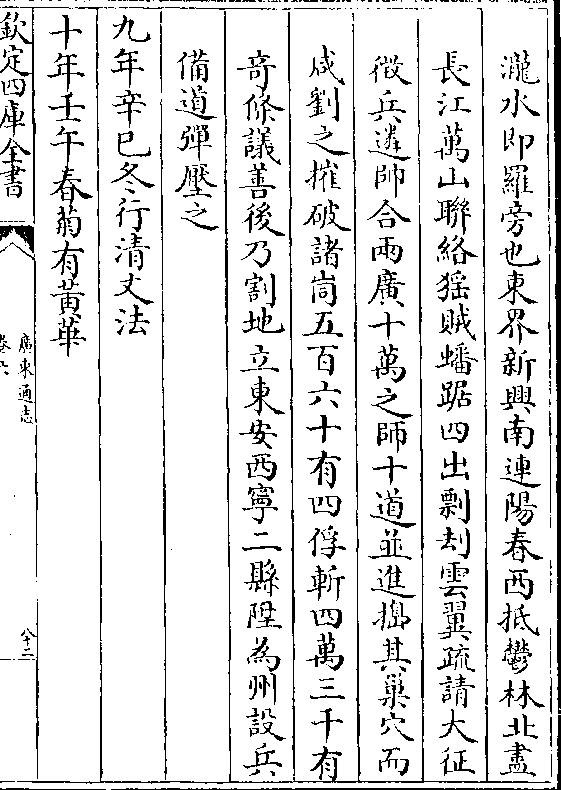 瀧水即羅旁也東界新興南連陽春西抵鬱林北盡
長江萬山聯絡猺賊蟠踞四出剽刦雲翼疏請大征
徵兵遴帥合兩廣十萬之師十道並進搗其巢穴而
咸劉之摧破諸峝五百六十有四俘斬四萬三千有
竒條議善後乃割地立東安西寧二縣陞為州設兵
備道彈壓之
九年辛巳冬行清丈法
十年壬午春菊有黃華
欽定四庫全書
廣東通志
卷六